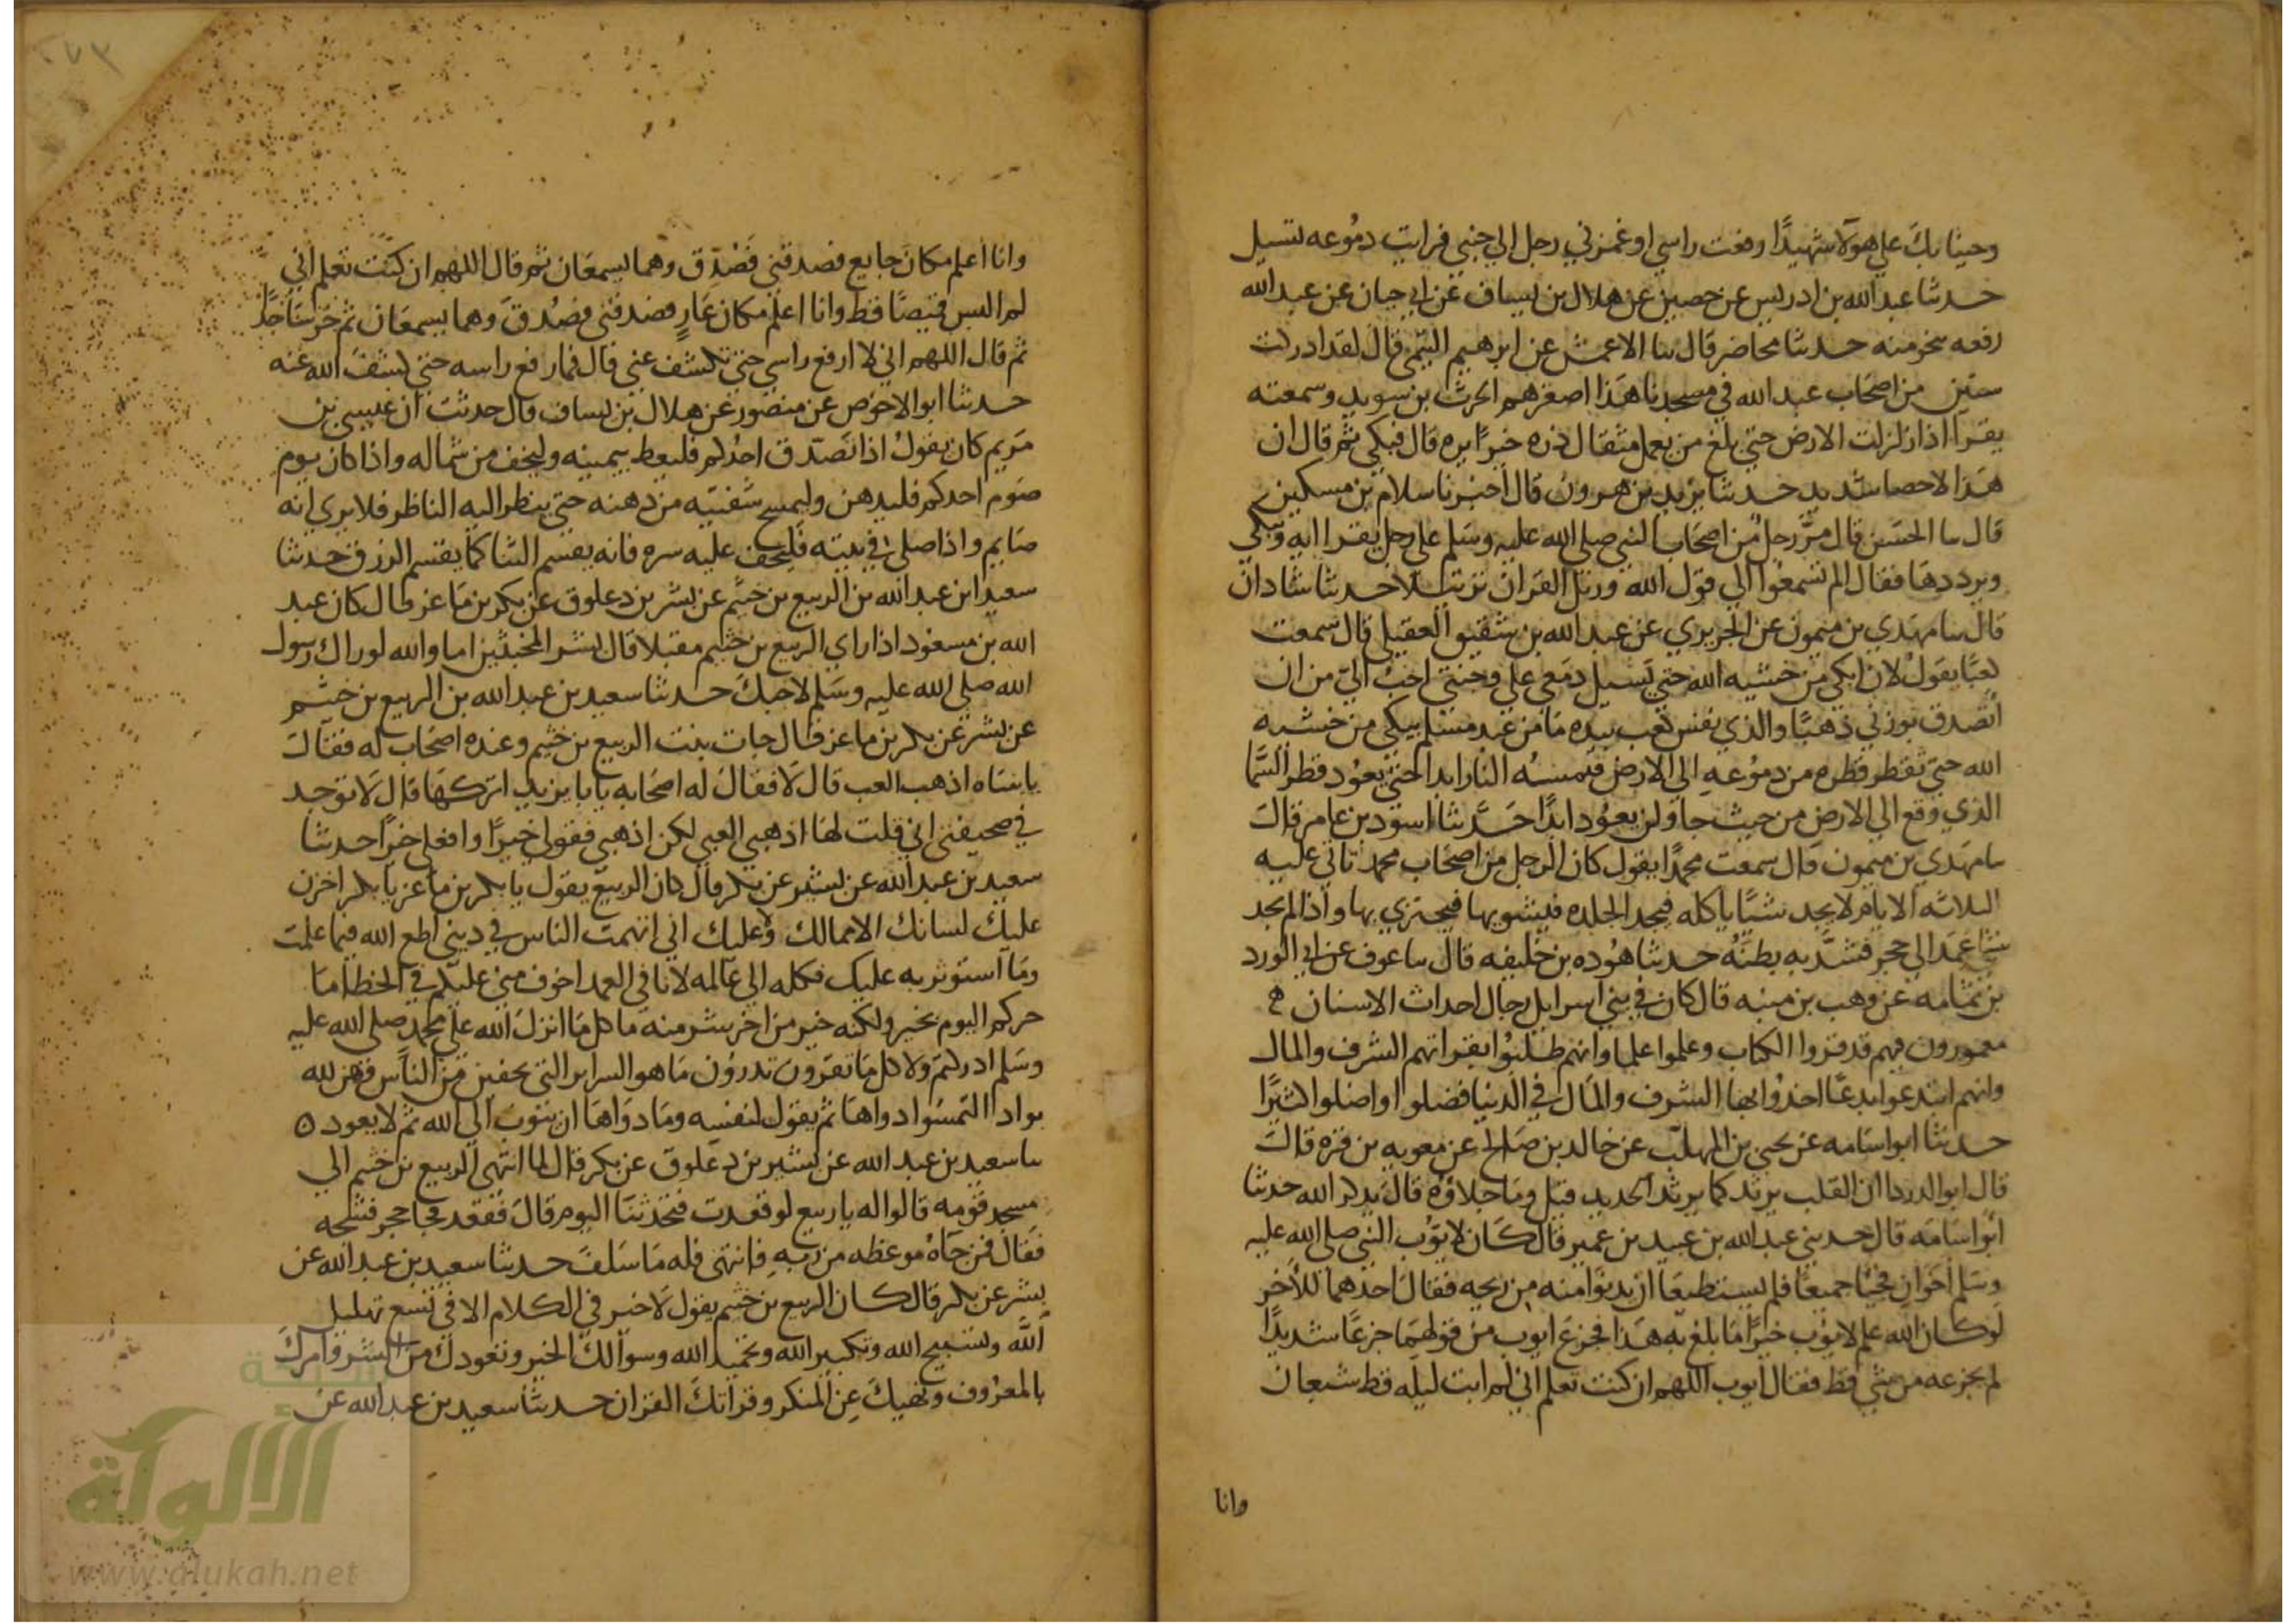 وجينا بك علي هولا شهيدًا رفعت راسي او غمزني رجل الي جنبي فرايت دموعه تسيل
حدثنا عبد الله بن ادريس عن حصين عن هلال بن يساف عن ابي حيان عن عبد الله
رفعه بنحو منه حدثنا محاضر قال سا الاعمش عن ابرهيم التيمي قال لقد ادركت
ستين من اصحاب عبد الله في مسجدنا هذا اصغرهم الحرث بن سويد وسمعته
يقرا اذا زلزلت الارض حتي بلغ من يعمل مثقال ذره خيرًا يره قال فبكي ثم قال ان
هذا الاحصا شديد حدثنا يزيد بن هرون قال اخبرنا سلام بن مسكين
قال سا الحسن قال مرَّ رجل من اصحاب النبي صلي الله عليه وسلم علي رجل يقرا ايه ويبكي
ويرددها فقال الم تسمعوا الي قول الله ورتل القران ترتيلا حدثنا شاذان
قال سا مهدي بن ميمون عن الجريري عن عبد الله بن شقيق العقيلي قال سمعت
كعبًا يقول لان ابكي من خشيه الله حتي تسيل دمعي علي وجنتي احب الي من ان
اتصدق بوزني ذهبًا والذي نفس كعب بيده ما من عبد مسلم يبكي من خشيه
الله حتي تقطر قطره من دموعه الي الارض فتمسه النار ابدا حتي يعود قطر السما
الذي وقع الي الارض من حيث جا ولن يعود ابدًا حدثنا اسود بن عامر قال
سا مهدي بن ميمون قال سمعت محمدًا يقول كان الرجل من اصحاب محمد تاتي عليه
الثلاثه الايام لا يجد شيًا ياكله فيجد الجلده فيشويها فيجتزي بها واذا لم يجد
شيا عمد الي حجر فشد به بطنه حدثنا هوده بن خليفه قال سا عوف عن ابي الورد
بن ثمامه عن وهب بن منبه قال كان في بني اسرايل رجال احداث الاسنان
مغمورون فيهم قد قروا الكتاب وعلموا علما وانهم طلبوا بقراتهم الشرف والمال
وانهم ابتدعوا بدعًا اخذوا بها الشرف والمال في الدنيا فضلوا واضلوا كثيرًا
حدثنا ابو اسامه عن يحيي بن المهلب عن خالد بن صالح عن معويه بن قره قال
قال ابو الدردا ان القلب يربد كما يربد الحديد قيل وما جلاوه قال يذكر الله حدثنا
ابو اسامه قال حدثني عبد الله بن عبيد بن عمير قال كان لايوب النبي صلي الله عليه
وسلم اخوان فجيا جميعًا فلم يستطيعا ان يدنوا منه من ريحه فقال احدهما للاخر
لو كان الله علم لايوب خيرًا ما بلغ به هذا فجزع ايوب من قولهما جزعًا شديدًا
لم يجزعه من شي قط فقال ايوب اللهم ان كنت تعلم اني لم ابت ليله قط شبعان
وانا
وانا اعلم مكان جايع فصدقني فَصُدّق وهما يسمعان ثم قال اللهم ان كنت تعلم اني
لم البس قميصًا قط وانا اعلم مكان عارٍ فصدقني فصُدق وهما يسمعان ثم خر ساجدًا
ثم قال اللهم اني لا ارفع راسي حتي تكشف عني قال فما رفع راسه حتي كشف الله عنه
حدثنا ابو الاحوص عن منصور عن هلال بن يساف قال حدثت ان عيسي بن
مريم كان يقول اذا تصدق احدكم فليعط بيمينه وليخف من شماله واذا كان يوم
صوم احدكم فليدهن وليمسح شفتيه من دهنه حتي ينظر اليه الناظر فلا يري انه
صايم واذا صلي في بيته فليخف عليه سره فانه يقسم الثنا كما يقسم الرزق حدثنا
سعيد ابن عبد الله بن الربيع بن خثيم عن بشر بن دعلوق عن بكر بن ماعز قال كان عبد
الله بن مسعود اذا راي الربيع بن خثيم مقبلا قال بشر المخبتين اما والله لو راك رسول
الله صلي الله عليه وسلم لاحبك حدثنا سعيد بن عبد الله بن الربيع بن خثيم
عن بشر عن بكر بن ماعز قال جات بنت الربيع بن خثيم وعنده اصحاب له فقالت
يا ابتاه اذهب العب قال لا فقال له اصحابه يا با يزيد اتركها قال لا توجد
في صحيفتي اني قلت لها اذهبي العبي لكن اذهبي فقولي خيرًا وافعلي خيرًا حدثنا
سعيد بن عبد الله عن بشير عن بكر قال كان الربيع يقول يا بكر بن ماعز يا بكر اخزن
عليك لسانك الا مما لك ولا عليك اني اتهمت الناس في ديني اطع الله فيما علمت
وما استوثر به عليك فكله الي عالمه لانا في العمد اخوف مني عليكم في الخطا ما
خيركم اليوم بخير ولكنه خير من اخر شر منه ما كل ما انزل الله علي محمد صلي الله عليه
وسلم ادركتم ولا كل ما تقرون تدرون ما هو السراير التي يخفين من الناس وهن لله
بوادا التمسوا دواها ثم يقول لنفسه وما دواها ان يتوب الي الله ثم لا يعود ه
سا سعيد بن عبد الله عن بشير بن دعلوق عن بكر قال لما انتهي الربيع بن خثيم الي
مسجد قومه قالوا له يا ربيع لو قعدت فتحدثنا اليوم قال فقعد فجا حجر فشجه
فقال فمن جاه موعظه من ربه فانتهي فله ما سلف حدثنا سعيد بن عبد الله عن
بشر عن بكر قال كان الربيع بن خثيم يقول لا خير في الكلام الا في تسع تهليل
الله وتسبيح الله وتكبير الله وتحميد الله وسوالك الخير وتعوذك من الشر وامرك
بالمعروف ونهيك عن المنكر وقراتك القران حدثنا سعيد بن عبد الله عن
شبكة
الألوكة
www.alukah.net